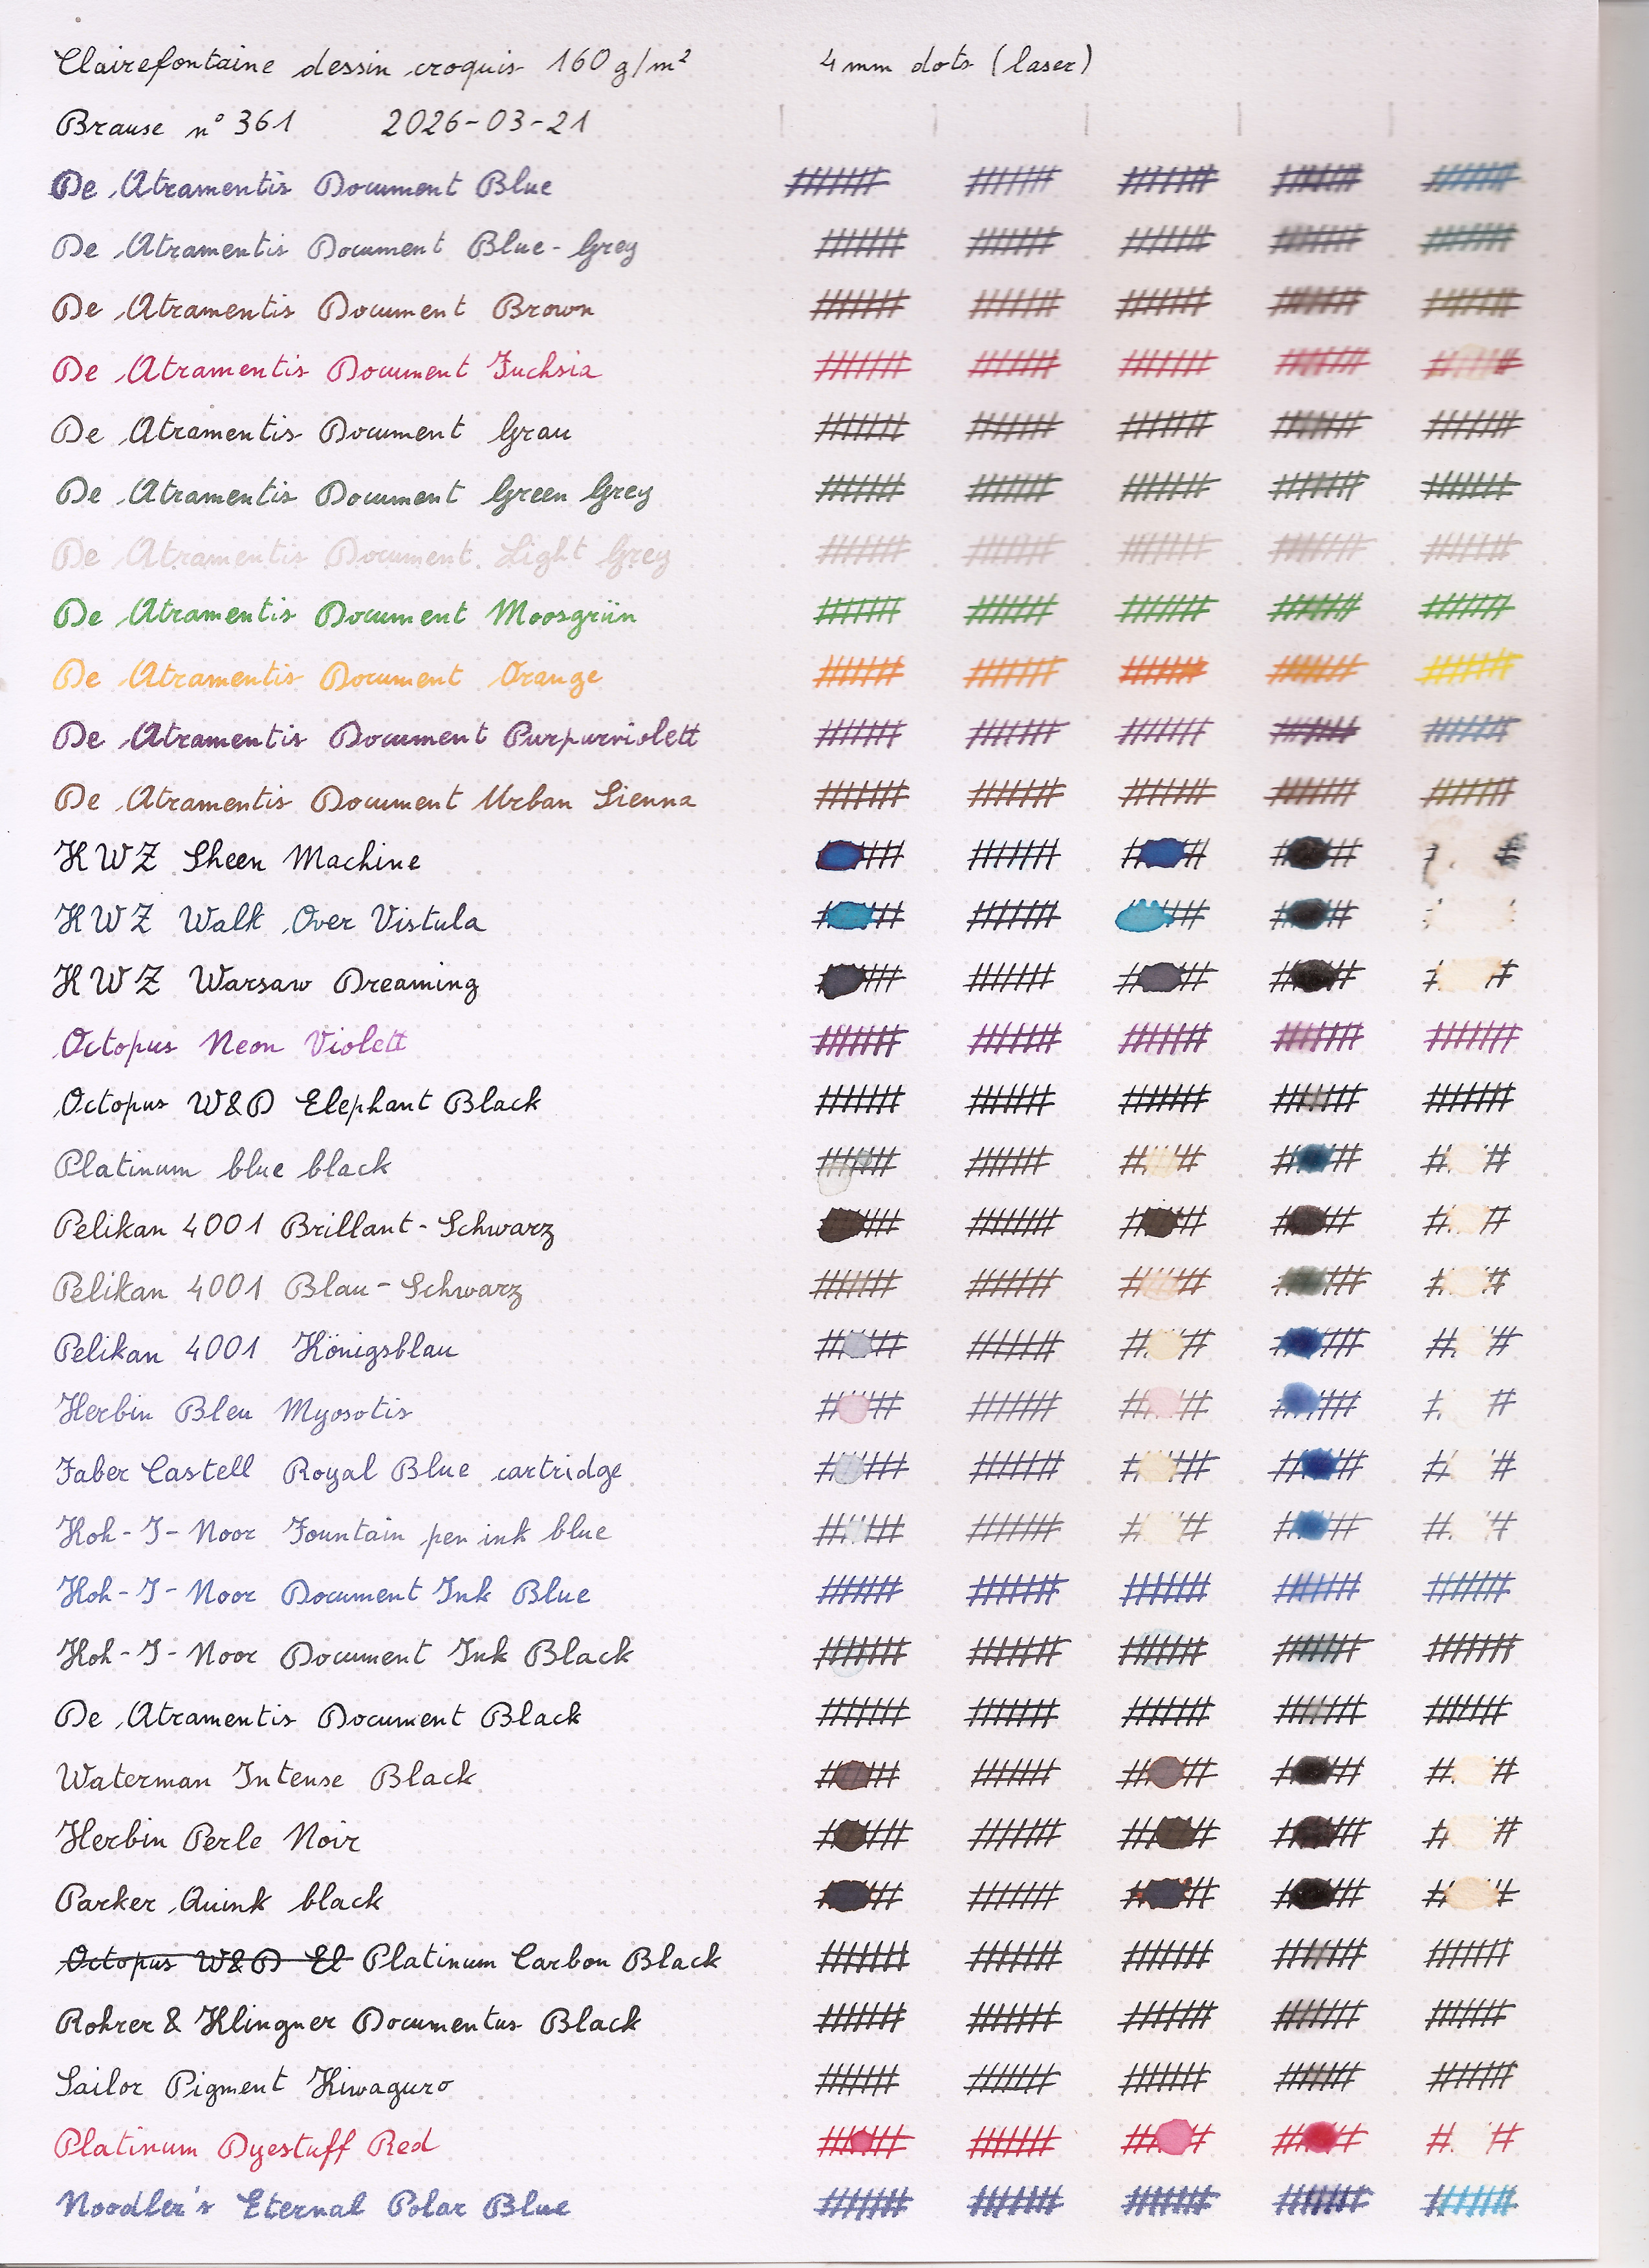 Clairefontaine dessin croquis 160 g/m² 4mm dots (laser)
Brause n° 361 2026-03-21
De Atramentis Document Blue
De Atramentis Document Blue-Grey
De Atramentis Document Brown
De Atramentis Document Fuchsia
De Atramentis Document Grau
De Atramentis Document Green Grey
De Atramentis Document Light Grey
De Atramentis Document Moosgrün
De Atramentis Document Orange
De Atramentis Document Purpurviolett
De Atramentis Document Urban Sienna
KWZ Sheen Machine
KWZ Walk Over Vistula
KWZ Warsaw Dreaming
Octopus Neon Violett
Octopus W&D Elephant Black
Platinum blue black
Pelikan 4001 Brillant-Schwarz
Pelikan 4001 Blau-Schwarz
Pelikan 4001 Königsblau
Herbin Bleu Myosotis
Faber Castell Royal Blue cartridge
Koh-I-Noor Fountain pen ink blue
Koh-I-Noor Document Ink Blue
Koh-I-Noor Document Ink Black
De Atramentis Document Black
Waterman Intense Black
Herbin Perle Noir
Parker Quink black
Octopus W&D El Platinum Carbon Black
Rohrer & Klingner Documentus Black
Sailor Pigment Kiwaguro
Platinum Dyestuff Red
Noodler's Eternal Polar Blue